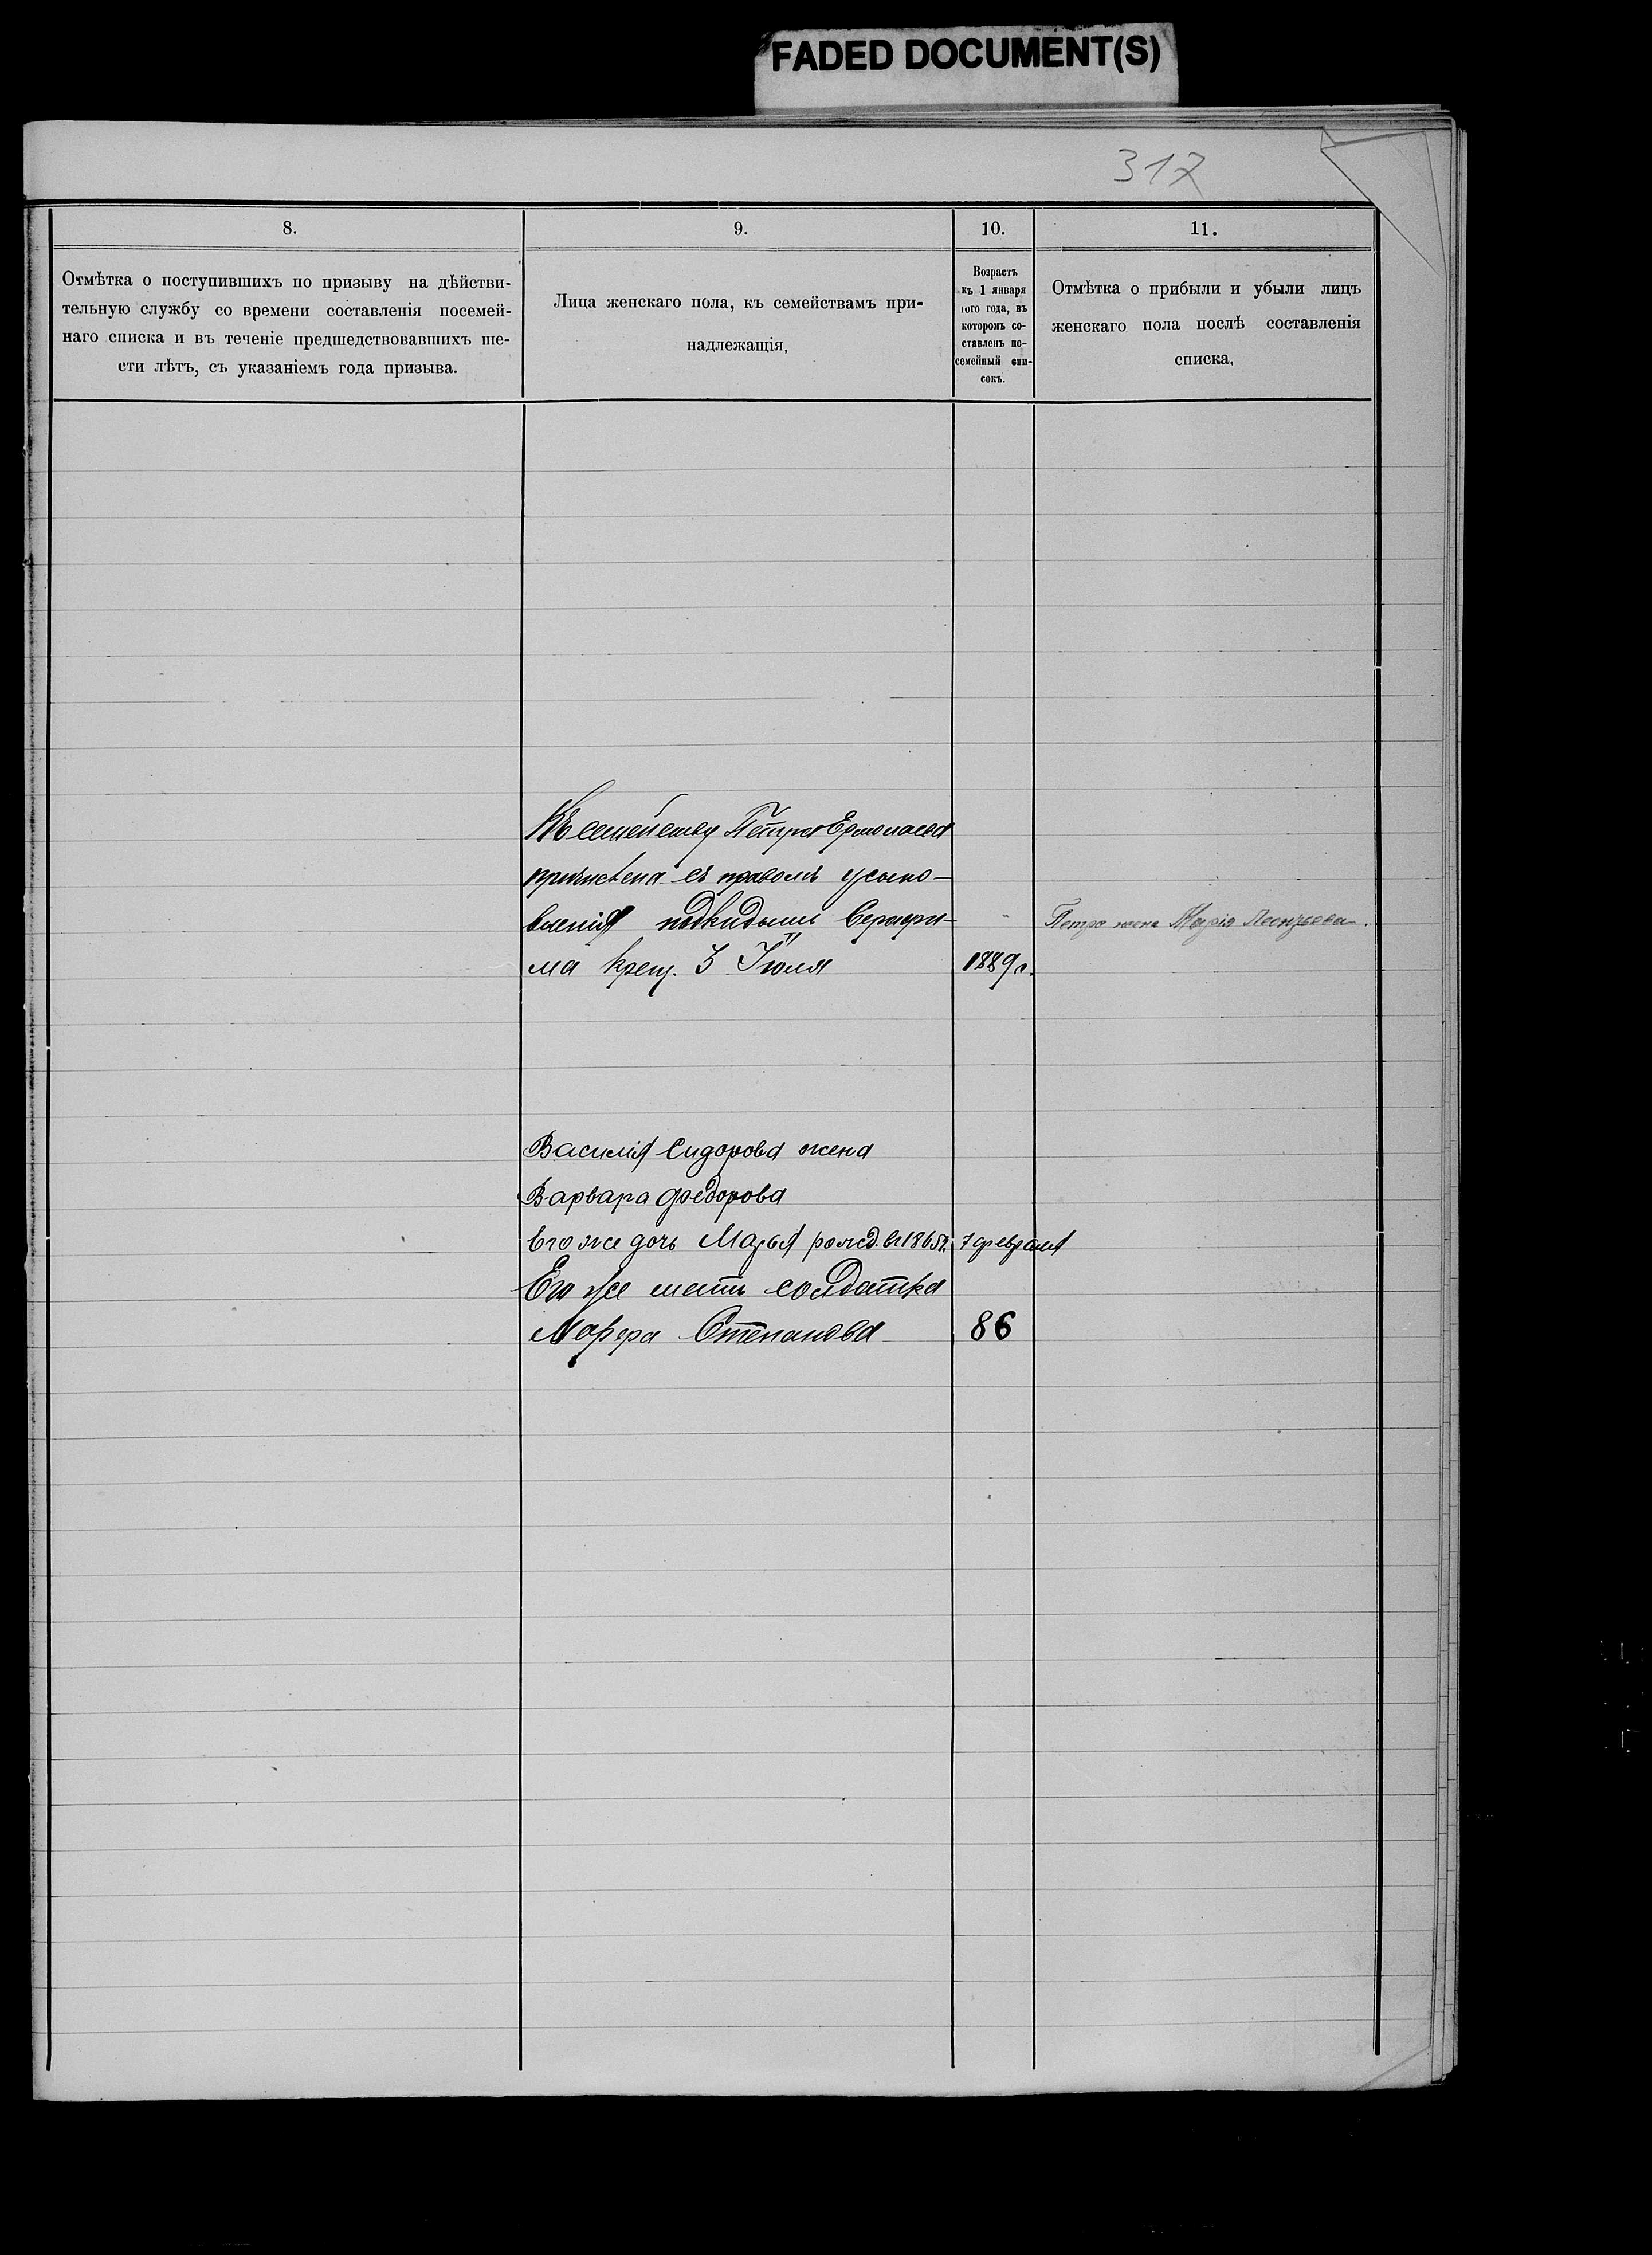 FADED DOCUMENT(S)
317
8.
9.
10.
11.
Отмѣтка о поступившихъ по призыву на дѣйстви-
тельную службу со времени составленія посемей-
наго списка и въ теченіе предшедствовавшихъ ше-
сти лѣтъ, съ указаніемъ года призыва.
Лица женскаго пола, къ семействамъ при-
надлежащія,
Возрастъ
къ 1 января
того года, въ
которомъ со-
ставленъ по-
семейный спи-
сокъ.
Отмѣтка о прибыли и убыли лицъ
женскаго пола послѣ составленія
списка,
Къ семейству Петра Ермолаева
причислена съ правомъ усыно-
вленія подкидышъ Серафи-
Петра жена Марія Леонтьева.
ма крещ. 3 Іюля 1889 г.
Василія Сидорова жена
Варвара Федорова
Его же дочь Марья рожд. въ 1865 г. 7 февраля
Его же мать солдатка
Марфа Степанова 86